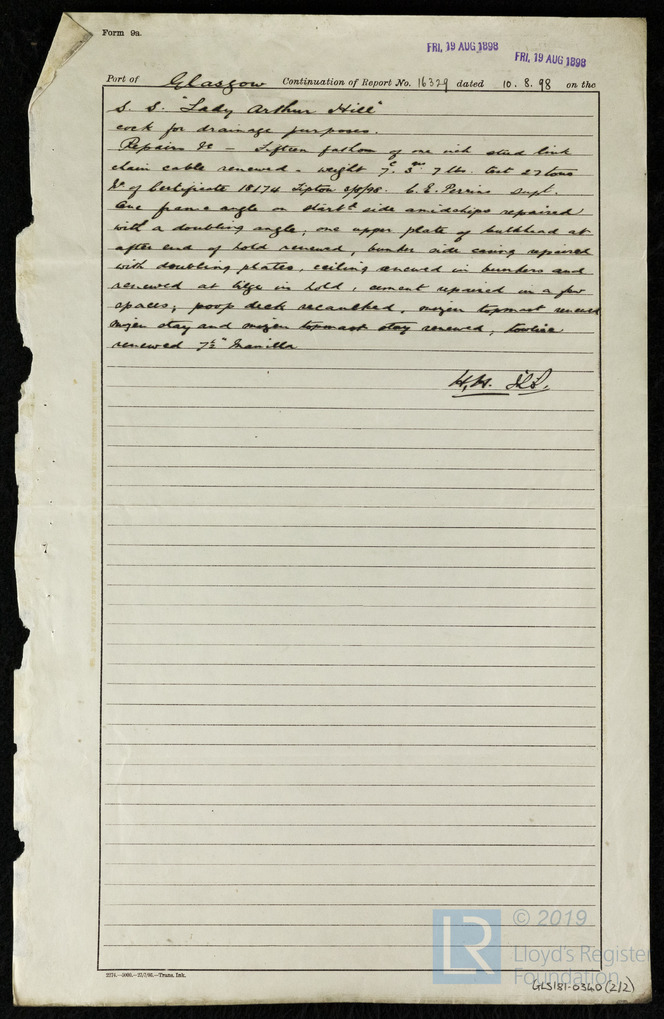 Form 9a.
FRI, 19 AUG 1898
FRI, 19 AUG 1898
Port of Glasgow Continuation of Report No. 16329 dated 10.8.98 on the
S. S. "Lady Arthur Hill"
cock for drainage purposes.
Repairs &c - Fifteen fathom of one inch stud link
chain cable renewed - weight 7c 3qrs 7 lbs. test 27 tons
No of Certificate 18174 Tipton 3/8/98. C. E. Perrins Supt.
One frame angle on Starbd side amidships repaired
with a doubling angle, one upper plate of bulkhead at
after end of hold renewed, bunker side casing repaired
with doubling plates, ceiling renewed in bunkers and
renewed at bilge in hold, cement repaired in a few
spaces, poop deck recaulked, mizen topmast renewed
mizen stay and mizen topmast stay renewed, towline
renewed 7½" Manilla
H.H.
2274.—5000.—27/7/95.—Trans. Ink.
LR
© 2019
Lloyd's Register
Foundation
GLS181-0340 (2/2)